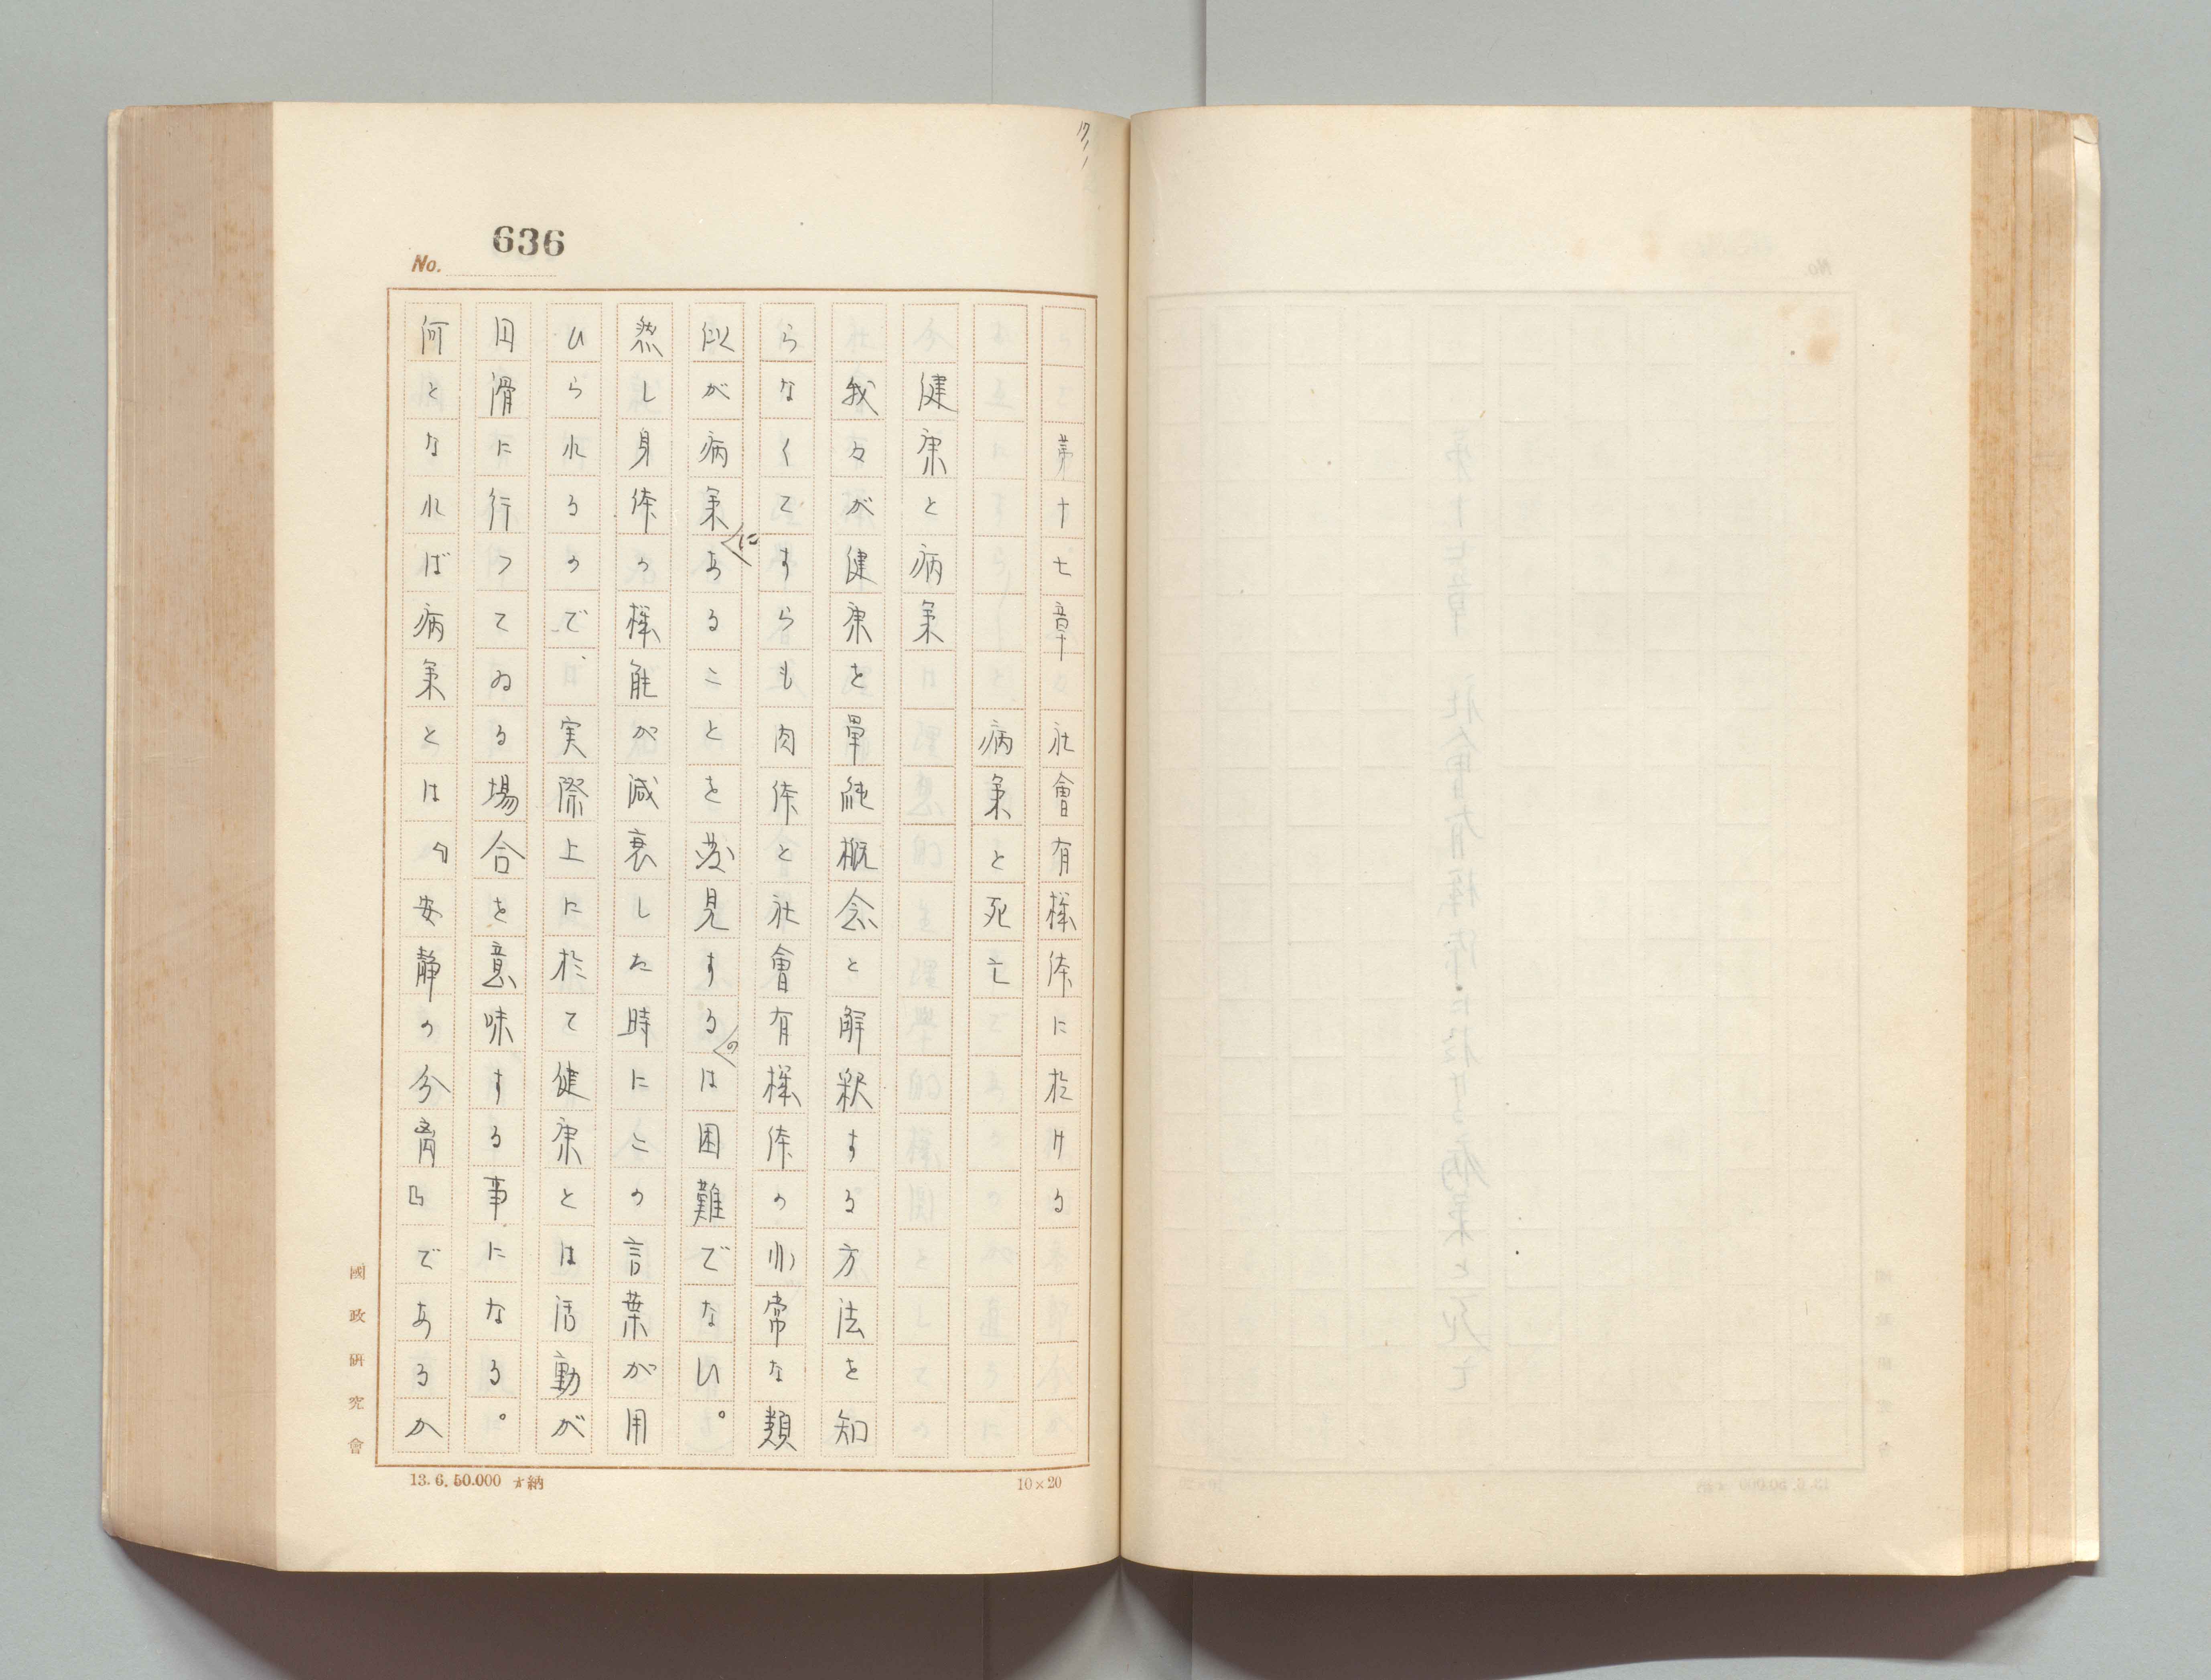 636
No.
第十七章 社會有機体に於ける
病気と死亡
健康と病気
我々が健康を單純概念と解釈する方法を知
らなくてすらも肉体と社會有機体の非常な類
似が病気にあることを発見するのは困難でない。
然し身体の機能が減衰した時にこの言葉が用
ひられるので、実際上に於て健康とは活動が
円滑に行つてゐる場合を意味する事になる。
何となれば病気とは『安静の分』であるか
國政研究會
13. 6. 50.000 納
10×20